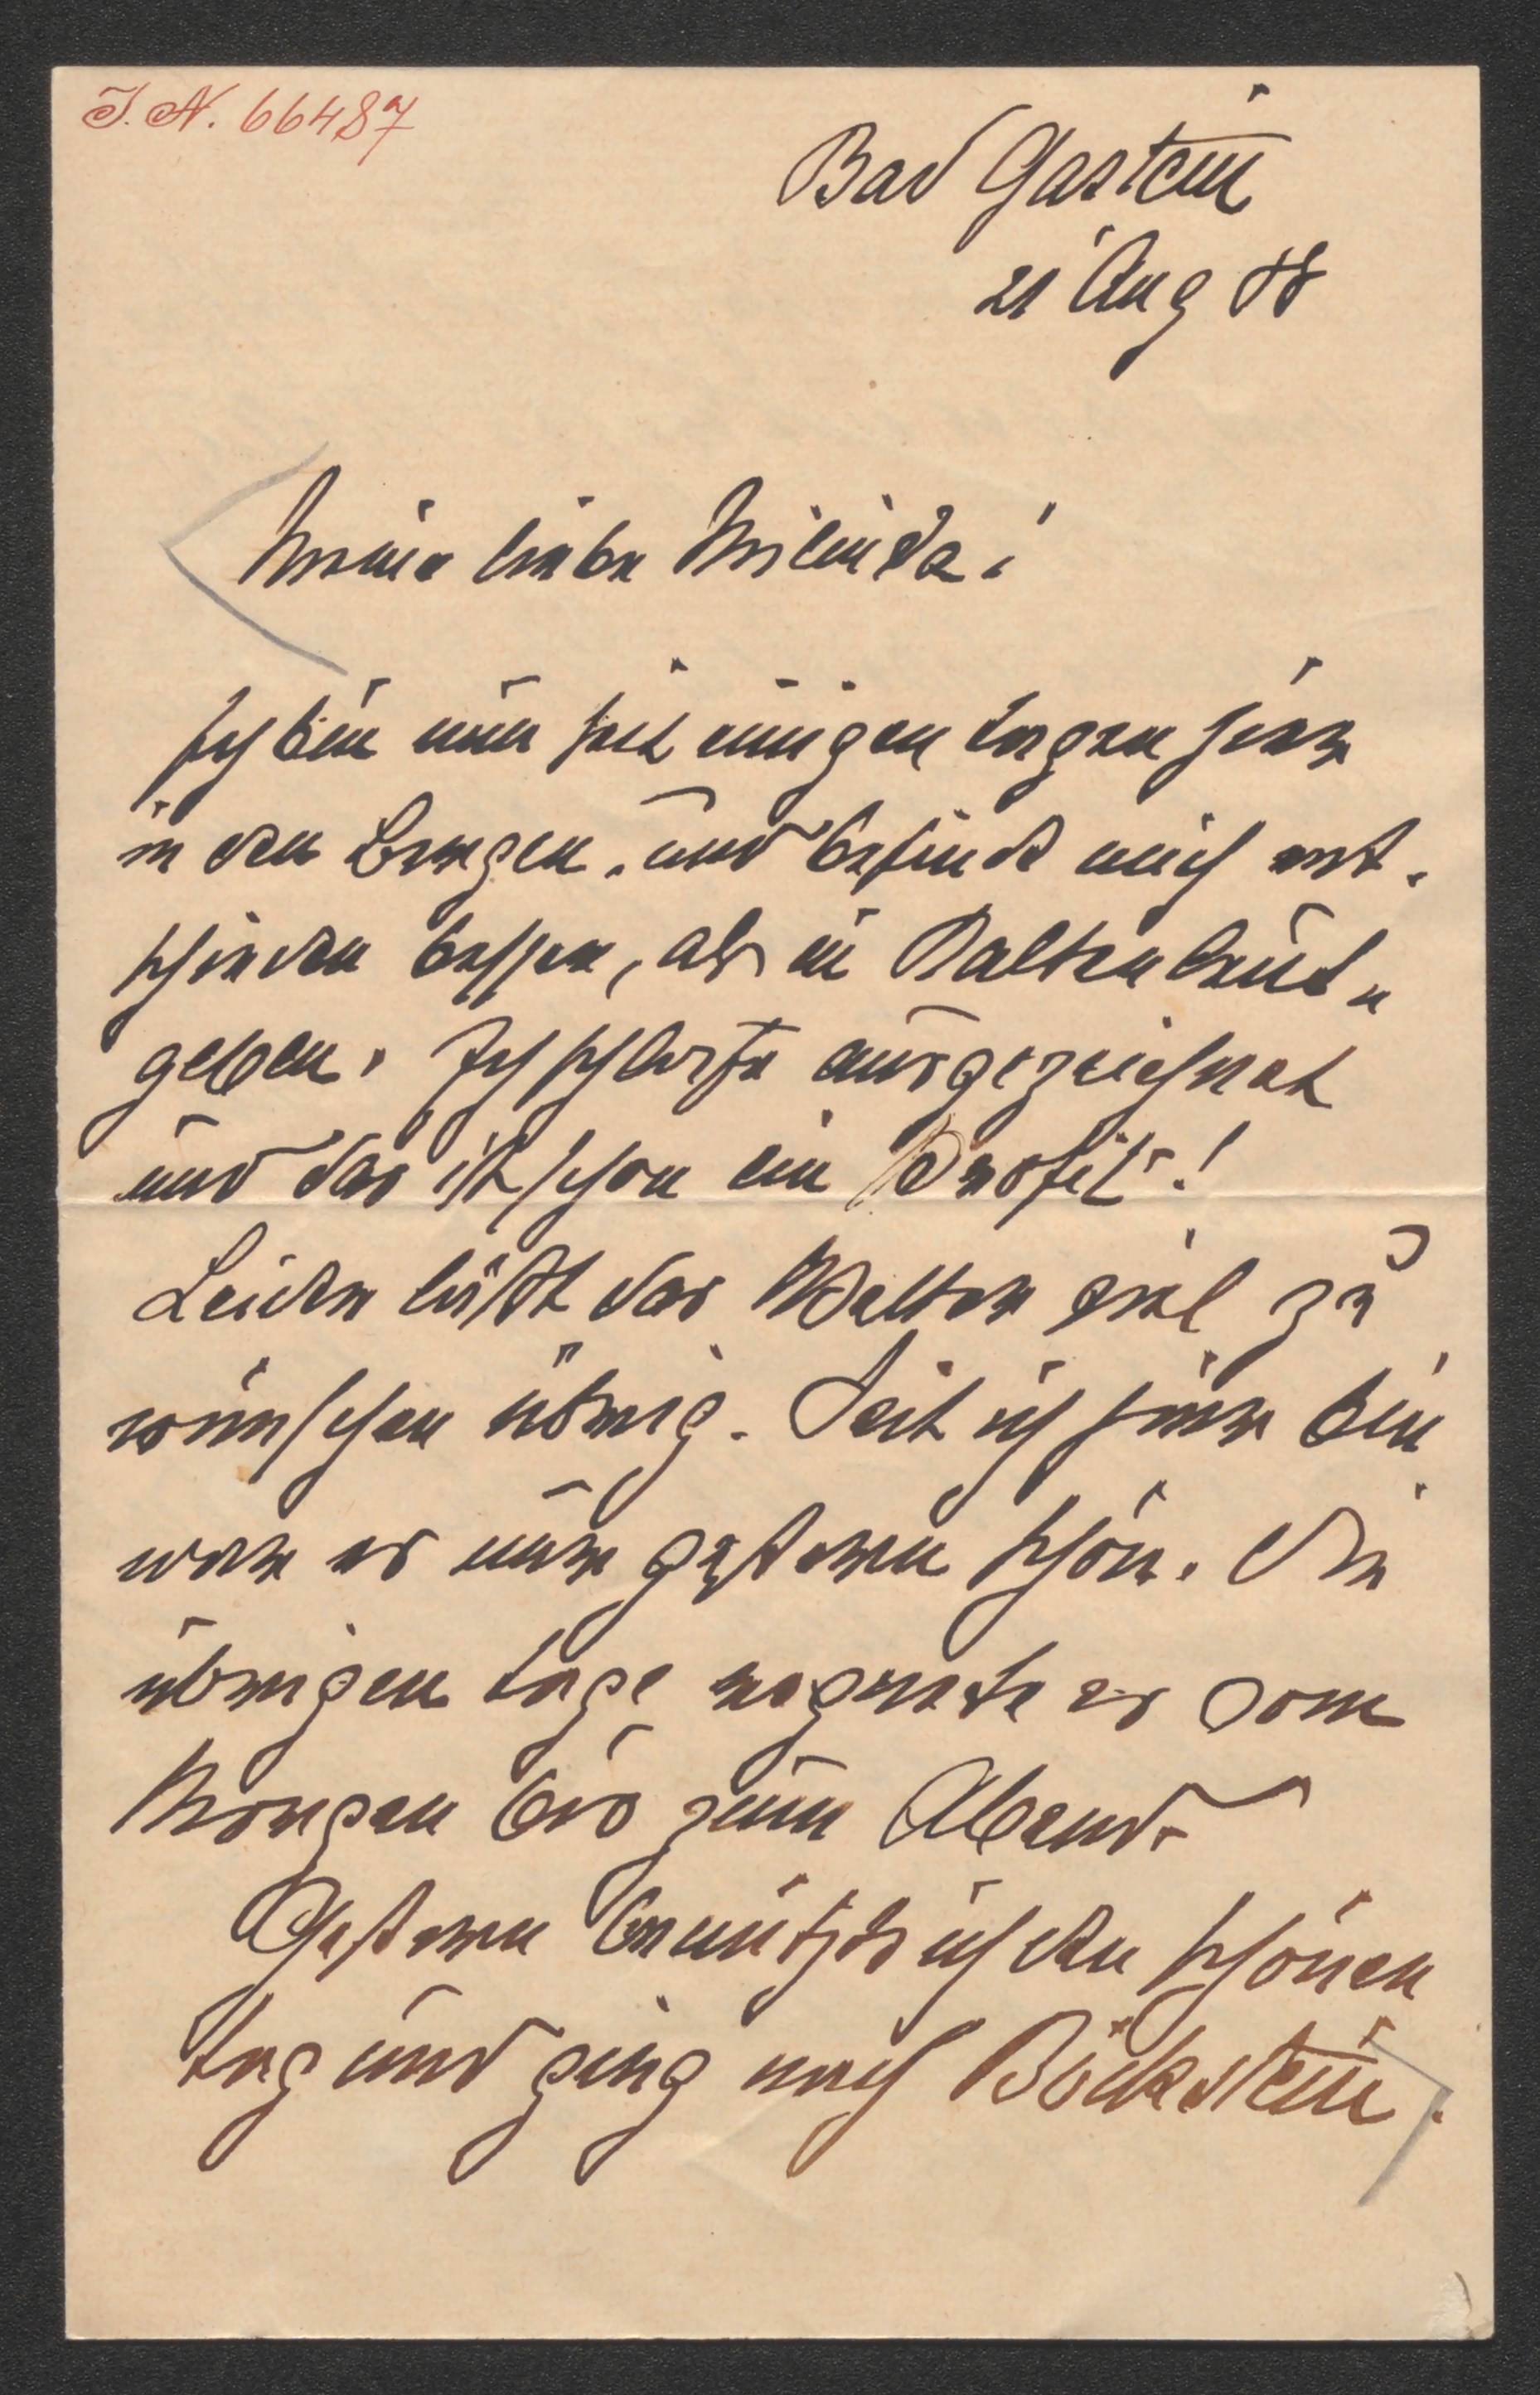 I. N. 66487
Bad Gastein
21 Aug 88
Meine liebe Milinda!
Ich bin nun seit einigen Tagen hier
in den Bergen, und befinde mich ent-
schieden besser, als in Kaltenleut-
geben. Ich schlafe ausgezeichnet
und das ist schon ein Profit!
Leider läßt das Wetter viel zu
wünschen übrig. Seit ich hier bin
war es nur gestern schön. Die
übrigen Tage regnete es vom
Morgen bis zum Abend.
Gestern benützte ich den schönen
Tag und ging nach Böckstein.